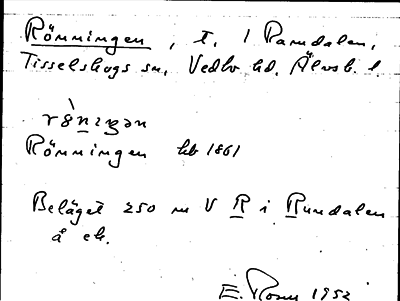 Rönningen, t. 1 Ramdalen,
Tisselskogs sn, Vedbo hd, Älvsb. l.
Rönningen hb 1861
Beläget 250 m V R i Rundalen
å ek.
E. Rosn 1952